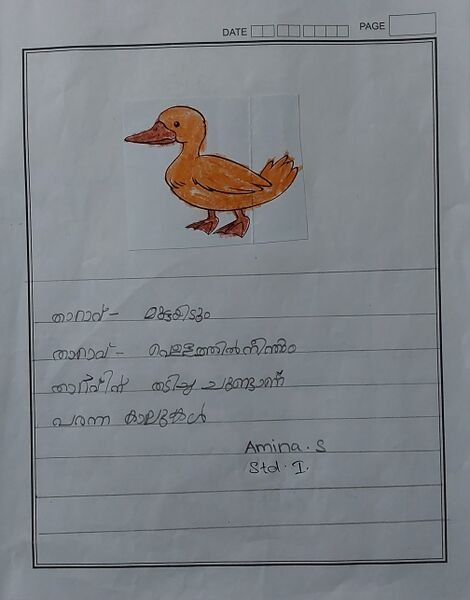 DATE
PAGE
താറാവ് - മുട്ടയിടും
താറാവ് - വെള്ളത്തിൽ നീന്തും
താറാവിന് തടിച്ച ചുണ്ടാണ്
പരന്ന കാലുകൾ
Amina. S
Std. I.